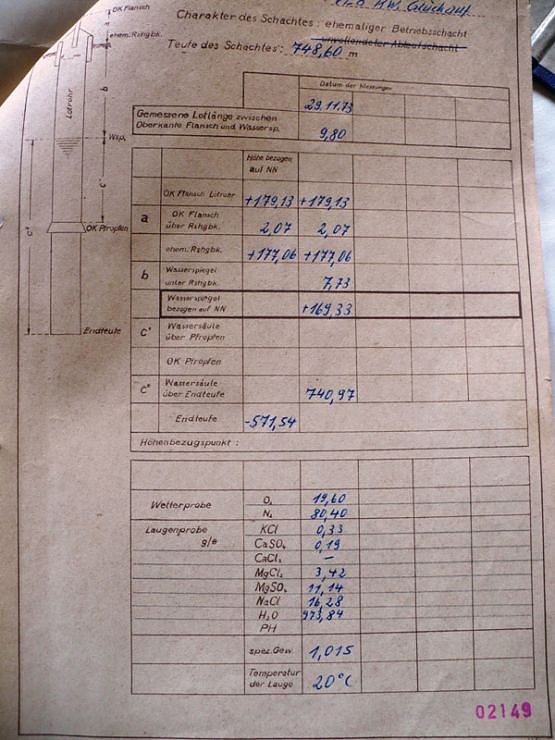 K.W. Glückauf
Charakter des Schachtes: ehemaliger Betriebsschacht
unvollendeter Ablaufschacht
Teufe des Schachtes: 748,60 m
OK Flansch
ehem. Rshgbk.
Lotrohr
b
Wsp.
c'
c"
OK Pfropfen
Endteufe
Datum der Messungen
29.11.73
Gemessene Lotlänge zwischen
Oberkante Flansch und Wassersp. 9,80
Höhe bezogen
auf NN
OK Flansch Lotrohr +179,13 +179,13
a OK Flansch
über Rshgbk. 2,07 2,07
ehem. Rshgbk. +177,06 +177,06
b Wasserspiegel
unter Rshgbk. 7,73
Wasserspiegel
bezogen auf NN +169,33
c' Wassersäule
über Pfropfen
OK Pfropfen
c" Wassersäule
über Endteufe 740,97
Endteufe -571,54
Höhenbezugspunkt:
Wetterprobe O₂ 19,60
N₂ 80,40
Laugenprobe KCl 0,33
g/e CaSO₄ 0,19
CaCl₂ –
MgCl₂ 3,42
MgSO₄ 11,14
NaCl 16,28
H₂O 973,84
PH
spez. Gew. 1,015
Temperatur
der Lauge 20°C
02149